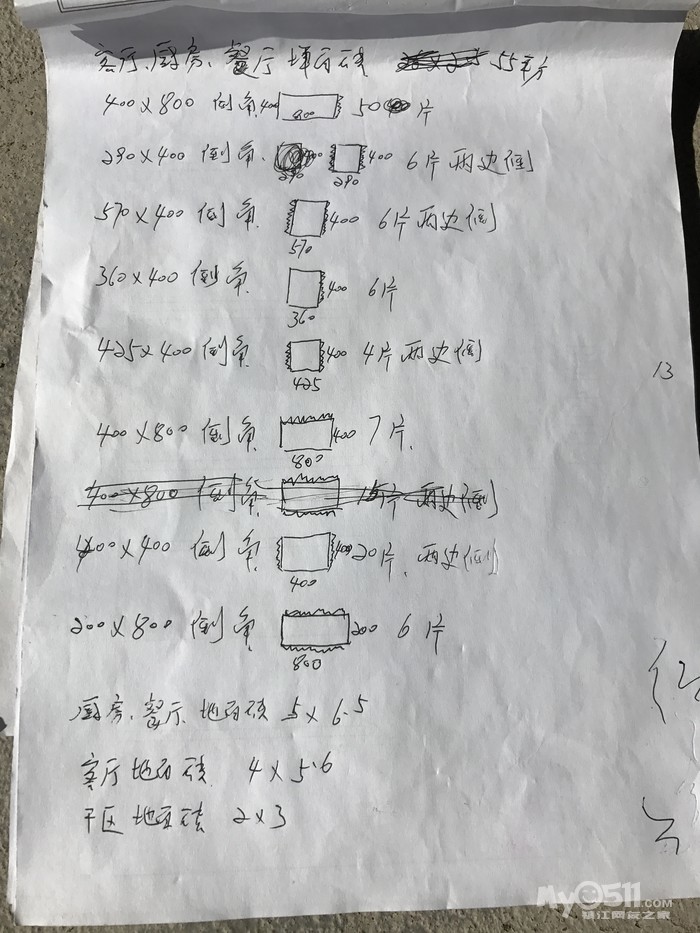 客厅、厨房、餐厅 墙面砖 55平方
400×800 倒角 400 800 50片
290×400 倒角 290 400 290 6片 两边倒
570×400 倒角 400 570 6片 两边倒
360×400 倒角 400 360 6片
425×400 倒角 400 425 4片 两边倒
13
400×800 倒角 400 800 7片
400×800 倒角 15片 两边倒
400×400 倒角 400 400 20片 两边倒
200×800 倒角 200 800 6片
厨房、餐厅 地面砖 5×6.5
客厅地面砖 4×5.6
干区 地面砖 2×3
My0511.COM
镇江网友之家